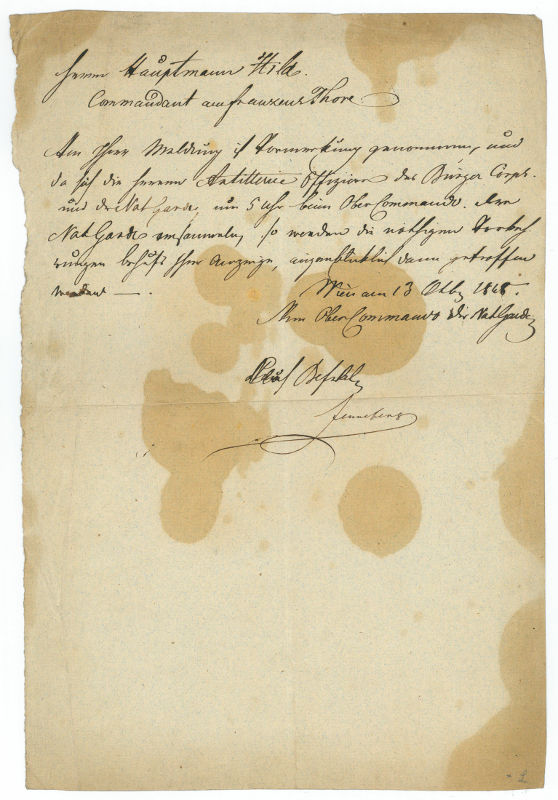 Herrn Hauptmann Hild.
Commandant am Franzens Thore.
Von Ihrer Meldung ist Vormerkung genommen, und
da sich die Herren Artillerie Offiziere des Bürger Corps.
und der Nat Garde, um 5 Uhr beim Ober Commando der
Nat Garde versammeln, so werden die nöthigen Vorkeh
rungen behufs Ihrer Anzeige, augenblicklich dann getroffen
werden —.
Wien am 13 Octb 1848
Vom Ober Commando der Nat Garde
Auf Befehl
Fenneberg